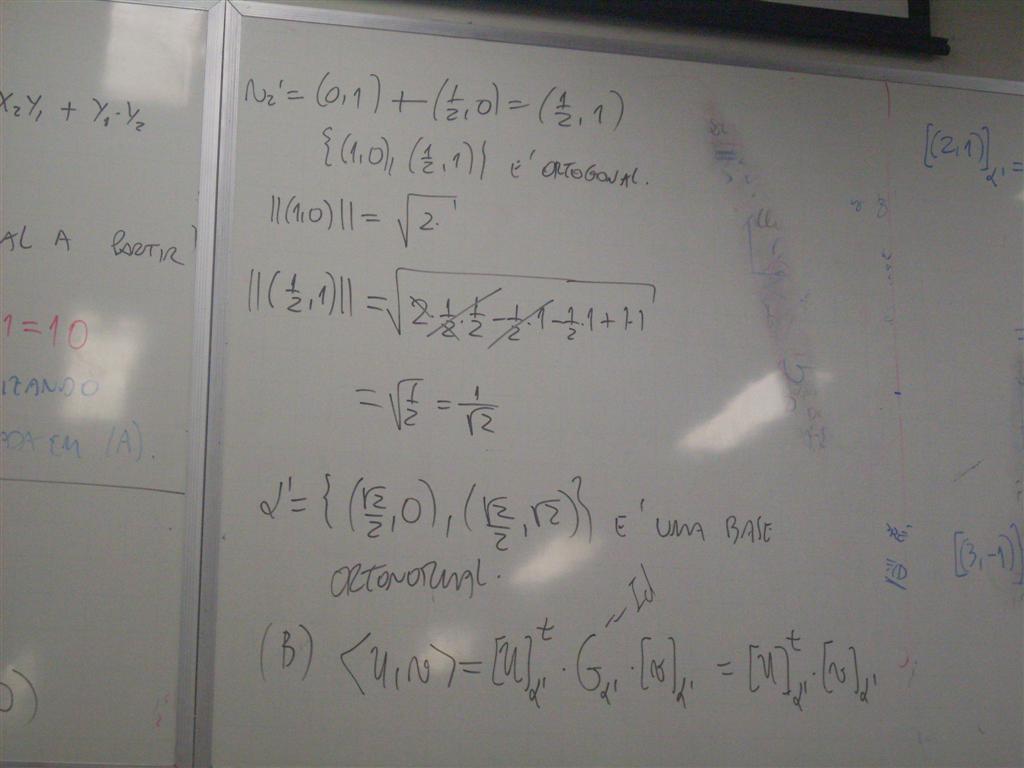 X₂Y₁ + Y₁·Y₂
AL A PARTIR
1=10
IZANDO
ADA EM (A).
v₂' = (0,1) + (1/2, 0) = (1/2, 1)
{(1,0), (1/2, 1)} E' ORTOGONAL.
||(1,0)|| = √2.
||(1/2, 1)|| = √(2·1/2·1/2 - 1/2·1 - 1/2·1 + 1·1)
= √(1/2) = 1/√2
α' = {(√2/2, 0), (√2/2, √2)} E' UMA BASE
ORTONORMAL.
(B) <u,v> = [u]ᵗα' · Gα' · [v]α' = [u]ᵗα' · [v]α'
= Id
[(2,1)]α' =
[(3,-1)]